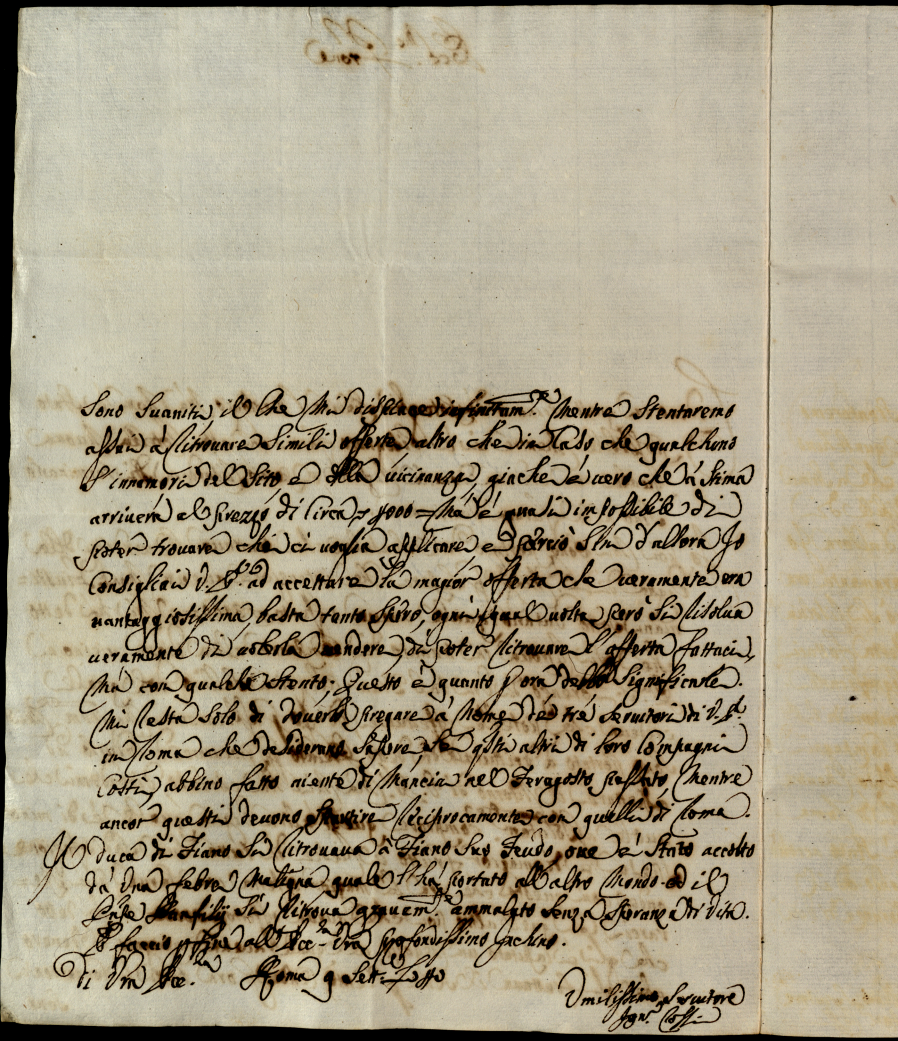 sono suaniti, il che mi dispiace infinitam.te mentre stentaremo
assai à ritrouare simili offerte altro che in caso che qualcheuno
s'innamori del sito e della uicinanza, giache è uero che à stima
arriuerà al prezzo di circa 7000 = mà è quasi impossibile di
poter trouare chi ci uoglia applicare e perciò sin d'allora Io
consigliai V. E. ad accettare la magior offerta che ueramente era
uantaggiosissima, basta tanto spero, ogni qual uolta però si risolua
ueramente di uolerla uendere, di poter ritrouare l'offerta fattaci,
mà con qualche stento; Questo è quanto p ora deuo significarle.
Mi resta solo di douerla pregare à nome de trè seruitori di V. E.
in Roma che desiderano sapere se q.sti altri di loro compagni
costì abbino fatto niente di mancia nel feragosto passato, mentre
ancor questi deuono spartire reciprocamente con quelli di Roma.
Il duca di Fiano si ritrouaua à Fiano suo feudo, oue è stato accolto
dà una febre maligna quale l'hà portato all'altro mondo ed il
Pnpe Panfilij si ritroua grauem.te ammalato senza speranza di uita.
E faccio p fine all'Ecc.za Vra profondissimo inchino.
Di Vra Ecc.za Roma 9 Sett.
Umilissimo Seruitore
Ign.o Rossi